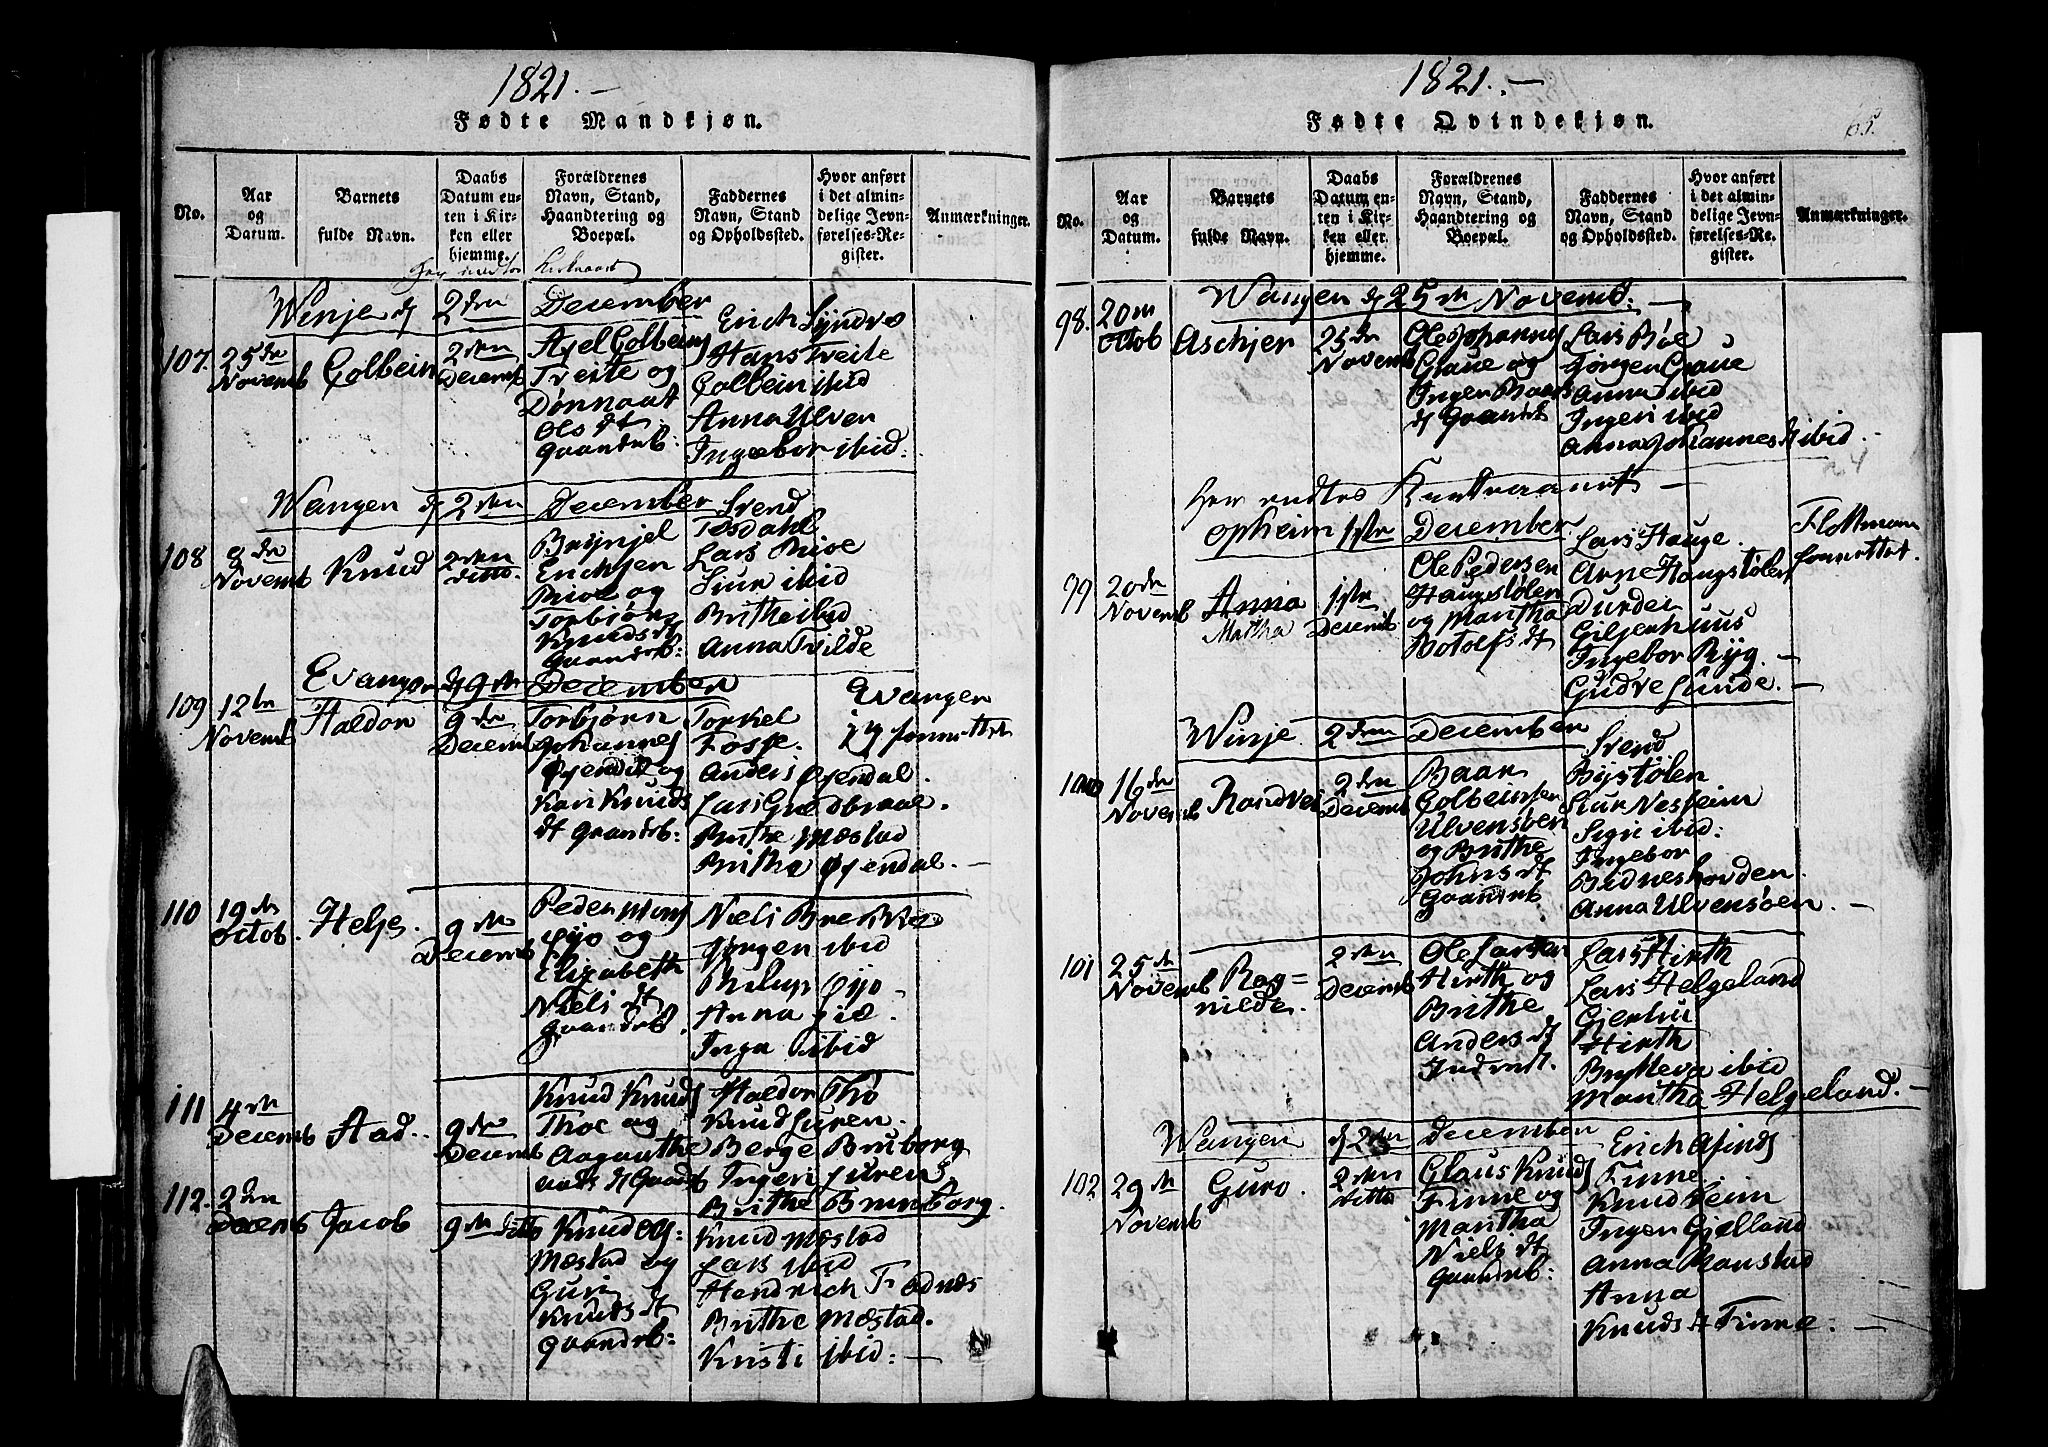 1821.
Fødte Mandkjøn.
No.
Aar og Datum.
Barnets fulde Navn.
Daabs Datum enten i Kirken eller hjemme.
Forældrenes Navn, Stand, Haandtering og Boepæl.
Faddernes Navn, Stand og Opholdssted.
Hvor anført i det almindelige Jevnførelses-Register.
Anmærkninger.
Winje d 2den December
107. 25de Novemb
Colbein
2den Decemb
Axel Colbeins
Treite og
Dønnaat
Ols dt
Gaardrb:
Erich Sundve
Hans Treite
Colbein ibid
Anna Ulven
Ingebor ibid:
Wangen d 2den December
108 8de Novemb
Knud
2den ditto.
Brynjel
Erichsen
Møe og
Torbjørg
Knuds dt
Gaardrb:
Svend
Tøsdahl
Lars Møe
Siur ibid
Brithe ibid
Anna Tvilde
Evanger d 9de December
109 12te Novemb
Haldor
9de Decemb
Torbjørn
Johannes
Øyendal og
Kari Knuds
dt Gaardrb:
Torkel
Fosse.
Anders Øyendal.
Lars Grædbraal.
Brithe Mæstad
Britha Øyendal.
Evanger
110 19de Octob.
Helje.
9de Decemb
Peder Mons
Øyo og
Elizabeth
Niels dt
Gaardrb.
Niels Brekke
Jørgen ibid
Anna
Inga ibid
111 4de Decemb
Aad.
9de Decemb
Knud Knuds
Thoe og
Aagaathe
Haldor Tho
Knud Luren.
Berge Bruborg
Ingeri Luren
Brithe Brunborg.
112. 2den Decemb
Jacob
9de ditto
Knud Ols:
Mæstad og
Guri
Knuds dt
Gaardrb:
Knud Mæstad
Lars ibid
Hendrich Fadnæs
Brithe Mæstad.
Kristi ibid:
1821.
65.
Fødte Qvindekjøn.
No.
Aar og Datum.
Barnets fulde Navn.
Daabs Datum enten i Kirken eller hjemme.
Forældrenes Navn, Stand, Haandtering og Boepæl.
Faddernes Navn, Stand og Opholdssted.
Hvor anført i det almindelige Jevnførelses-Register.
Anmærkninger.
Wangen d 25de Novemb:
98. 20de Octob
Aschjer
25de Novemb
Ole Johannes
Graue og
Inger Baars
dt Gaardrb
Lars Bøe
Jørgen Graue
Anna ibid
Ingeri ibid
Anna Johannes dt ibid.
Opheim 1ste December
99 20de Novemb
Anna
Martha
1ste Decemb
Ole Pedersen
Haugstølen
og Martha
Botolfs dt
Lars Hauge.
Arne Haugstølen
Durdei
Giljerhuus
Ingebor Ryg.
Gudve Sunde.
Winje 2den December
100 16de Novemb
Randvei
2den Decemb
Baar
Colbeinsen
Ulvensøen
og Brithe
Johns dt
Gaardrb
Svend
Bystølen
Siur Nesheim
Sigri ibid:
Ingebor
Bidneshovden.
Anna Ulvensøen.
101 25de Novemb
Ragnilde.
2den Decemb
Ole Larsen
Hirth og
Brithe
Anders dt
Lars Hirth
Lars Helgeland
Gjerthu
Hirth
Brytteva ibid
Martha Helgeland.
Wangen d 2den December
102 29de Novemb
Guro.
2den ditto
Claus Knuds
Finne og
Martha
Niels dt
Gaardrb:
Erich Asinds
Finne
Knud Seim
Inger Gjelland
Anna Ranstad
Anna
Knuds dt Finne.